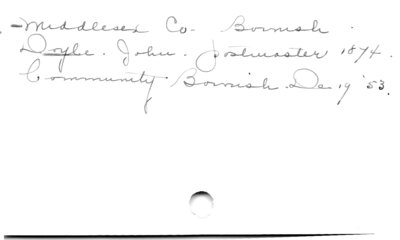 - Middlesex Co. Bornish.
Doyle. John. Postmaster 1874.
Community Bornish. De 19 '53.